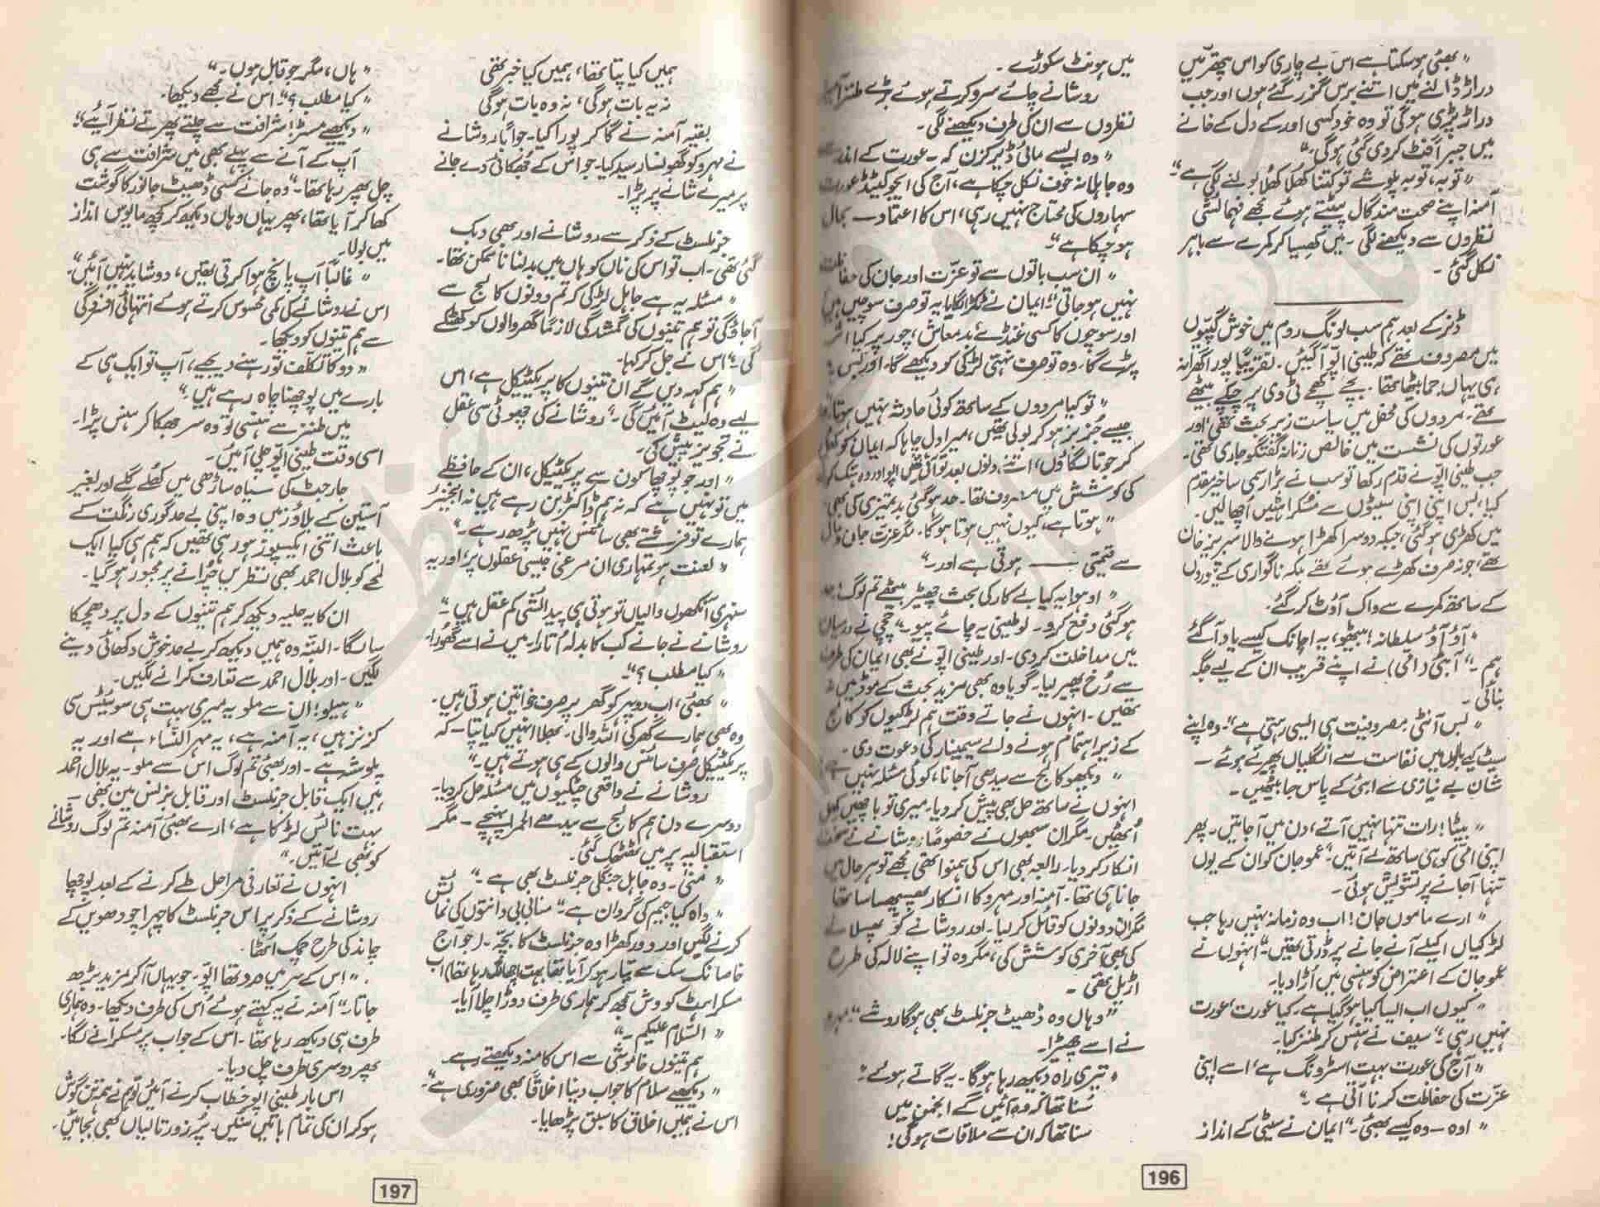 "بھئی ہو سکتا ہے اس بے چاری کو اس پتھر میں
دراڑ ڈالنے میں اتنے برس گزر گئے ہوں اور جب
دراڑ پڑی ہو گی تو وہ خود کسی اور کے دل کے خانے
میں جبراً فٹ کر دی گئی ہو گی۔"
"توبہ، توبہ پلوشے تو کتنا کھلا کھلا بولنے لگی ہے"
آمنہ اپنے صحت مند گال پیٹتے ہوئے مجھے فہمائشی
نظروں سے دیکھنے لگی۔ میں کھسیا کر کمرے سے باہر
نکل گئی۔
ڈنر کے بعد ہم سب لونگ روم میں خوش گپیوں
میں مصروف تھے کہ طیبی اپو آ گئیں۔ تقریباً پورا گھرانہ
ہی یہاں جما بیٹھا تھا۔ بچے کچھے ٹی وی پر چپکے بیٹھے
تھے۔ مردوں کی محفل میں سیاست زیر بحث تھی اور
عورتوں کی نشست میں خالص زنانہ گفتگو جاری تھی۔
جب طیبی اپو نے قدم رکھا تو سب نے بڑا رسمی سا خیر مقدم
کیا، بس اپنی اپنی سیٹوں سے مسکراہٹیں اچھالیں۔
میں کھڑی ہو گئی، جبکہ دوسرا کھڑا ہونے والا سبریز خان
تھے، جو نہ صرف کھڑے ہوئے تھے بلکہ ناگواری کے تیوروں
کے ساتھ کمرے سے واک آؤٹ کر گئے۔
"آؤ آؤ سلطانہ! بیٹھو، یہ اچانک کیسے یاد آ گئے
ہم۔" آبئی (امی) نے اپنے قریب ان کے لیے جگہ
بنائی۔
"بس آنٹی! مصروفیت ہی ایسی رہتی ہے" وہ اپنے
سیٹ کیے بالوں میں نفاست سے انگلیاں پھیرتے ہوئے
شان بے نیازی سے ابئی کے پاس جا بیٹھیں۔
"بیٹا! رات تنہا نہیں آتے، دن میں آ جاتیں۔ پھر
اپنی امی کو ہی ساتھ لے آتیں" عمو جان کو ان کے یوں
تنہا آ جانے پر تشویش ہوئی۔
"ارے ماموں جان! اب وہ زمانہ نہیں رہا جب
لڑکیاں اکیلے آنے جانے پر ڈرتی تھیں۔" انہوں نے
عمو جان کے اعتراض کو ہنسی میں اڑا دیا۔
"کیوں اب ایسا کیا ہو گیا ہے۔ کیا عورت، عورت
نہیں رہی۔" سیف نے ہنس کر طنز کیا۔
"آج کی عورت بہت اسٹرونگ ہے، اسے اپنی
عزت کی حفاظت کرنا آتی ہے۔"
"اوہ—وہ کیسے بھئی۔" ایمان نے سیٹی کے انداز
میں ہونٹ سکوڑے۔
روشانے چائے سرو کرتے ہوئے بڑے طنز آمیز
نظروں سے ان کی طرف دیکھنے لگی۔
"وہ ایسے مائی ڈیر کزن کہ – عورت کے اندر سے
وہ جاہلانہ خوف نکل چکا ہے، آج کی ایجوکیٹیڈ عورت
سہاروں کی محتاج نہیں رہی، اس کا اعتماد — بحال
ہو چکا ہے"
"ان سب باتوں سے تو عزت اور جان کی حفاظت
نہیں ہو جاتی" ایمان نے ٹکڑا لگایا "یہ تو صرف سوچیں ہیں
اور سوچوں کا کسی غنڈے، بد معاش، چور پر کیا اثر
پڑے گا، وہ تو صرف نہتی لڑکی کو دیکھے گا، اور بس۔"
"تو کیا مردوں کے ساتھ کوئی حادثہ نہیں ہوتا"
جیسے جزبز ہو کر بولی تھیں، میرا دل چاہا کہ ایمان کو
کر جوتا لگاؤں، اتنے دنوں بعد تو آئی تھیں اپو اور وہ
کی کوشش میں مصروف تھا۔ حد ہو گئی بدتمیزی کی بھی
"ہوتا ہے، کیوں نہیں ہوتا ہو گا، مگر عزت جان و مال
سے قیمتی — ہوتی ہے اور۔"
"اوہو! یہ کیا بے کار کی بحث چھیڑ بیٹھے تم لوگ!
ہو گئی دفع کرو۔ لو طیبی یہ چائے پیو۔" چچی نے درمیان
میں مداخلت کر دی۔ اور طیبی اپو نے بھی ایمان کی طرف
سے رخ پھیر لیا۔ گویا وہ بھی مزید بحث کے موڈ میں نہ
تھیں۔ انہوں نے جاتے وقت ہم لڑکیوں کو کالج
کے زیر اہتمام ہونے والے سیمینار کی دعوت دی۔
"دیکھو کالج سے سیدھی آ جانا، کوئی مسئلہ نہیں"
انہوں نے ساتھ حل بھی پیش کر دیا۔ میری تو باچھیں کھل
اٹھیں۔ مگر ان سبھوں نے خصوصاً روشانے نے سخت
انکار کر دیا۔ رابعہ بھی اس کی ہمنوا تھی مجھے تو ہر حال میں
جانا ہی تھا۔ آمنہ اور مہرو کا انکار پھسپھسا سا تھا
مگر ان دونوں کو قائل کر لیا۔ اور روشانے کو پھسلانے
کی بھی آخری کوشش کی، مگر وہ تو اپنے لالہ کی طرح
اڑیل تھی۔
"وہاں وہ ڈھیٹ جرنلسٹ بھی ہو گا روشے" مہرو
نے اسے چھیڑا۔
"تیری راہ دیکھ رہا ہو گا۔ یہ گاتے ہوئے۔
سنا تھا کہ وہ آئیں گے انجمن میں
سنا تھا کہ ان سے ملاقات ہو گی!
196
ہمیں کیا پتا تھا، ہمیں کیا خبر تھی
نہ یہ بات ہو گی، نہ وہ بات ہو گی
بقیہ آمنہ نے گا کر پورا کیا۔ جواباً روشانے
نے مہرو کو گھونسا رسید کیا۔ جو اس کے جھکائی دے جانے
پر میرے شانے پر پڑا۔
جرنلسٹ کے ذکر سے روشانے اور بھی بدک
گئی تھی۔ اب تو اس کی ناں کو ہاں میں بدلنا ناممکن تھا۔
"مسئلہ یہ ہے جاہل لڑکی کہ تم دونوں کالج سے
آ جاؤ گی تو ہم تینوں کی گمشدگی لازماً گھر والوں کو کھٹکے
گی۔" اس نے جل کر کہا۔
"ہم کہہ دیں گے ان تینوں کا پریکٹیکل ہے، اس
لیے وہ لیٹ آئیں گی۔" روشانے کی چھوٹی سی عقل
نے تجویز پیش کی۔
"اور جو پوچھا کون سے پریکٹیکل، ان کے حافظے
میں تو نہیں ہے کہ نہ ہم ڈاکٹر بن رہے ہیں نہ انجینئر
ہمارے تو فرشتے بھی سائنس نہیں پڑھ رہے۔"
"لعنت ہو تمہاری ان مرغی جیسی عقلوں پر، اور یہ
سنہری آنکھوں والیاں تو ہوتی ہی پیدائشی کم عقل ہیں۔"
روشانے نے جانے کب کا بدلہ اتارا۔ میں نے اسے گھورا۔
"کیا مطلب؟"
"بھئی، اب دوپہر کو گھر پر صرف خواتین ہوتی ہیں۔
وہ بھی ہمارے گھر کی اللہ والی۔ بھلا انہیں کیا پتا کہ
پریکٹیکل صرف سائنس والوں کے ہی ہوتے ہیں۔"
روشانے نے واقعی چٹکیوں میں مسئلہ حل کر دیا۔
دوسرے دن ہم کالج سے سیدھے الحمرا پہنچے۔ مگر
استقبالیہ پر میں ٹھٹھک گئی۔
"منی۔ وہ جاہل جنگلی جرنلسٹ بھی ہے۔"
"واہ کیا جیم کی گردان ہے" منالی بی دانتوں کی نمائش
کرنے لگیں اور دور کھڑا وہ جرنلسٹ کا بچہ۔ (جو آج
خاصا نک سک سے تیار ہو کر آیا تھا بہت اچھا لگ رہا تھا) اب
مسکراہٹ کو وش سمجھ کر ہماری طرف دوڑا چلا آیا۔
"السلام علیکم۔"
ہم تینوں خاموشی سے اس کا منہ دیکھتے رہے۔
"دیکھیے سلام کا جواب دینا اخلاقاً بھی ضروری ہے"
اس نے ہمیں اخلاق کا سبق پڑھایا۔
"ہاں، مگر جو قابل ہوں۔"
"کیا مطلب؟" اس نے مجھے دیکھا۔
"دیکھیے مسٹر! شرافت سے چلتے پھرتے نظر آئیے"
"آپ کے آنے سے پہلے بھی میں شرافت سے ہی
چل پھر رہا تھا۔" وہ جانے کسی ڈھیٹ جانور کا گوشت
کھا کر آیا تھا، پھر یہاں وہاں دیکھ کر کچھ مایوس انداز
میں بولا۔
"غالباً آپ پانچ ہوا کرتی تھیں، دو شاید نہیں آئیں"
اس نے روشانے کی کمی محسوس کرتے ہوئے انتہائی افسردگی
سے ہم تینوں کو دیکھا۔
"دو کا تکلف تو رہنے دیجیے، آپ تو ایک ہی کے
بارے میں پوچھنا چاہ رہے ہیں۔"
میں طنز سے ہنسی تو وہ سر جھکا کر ہنس پڑا۔
اسی وقت طیبی اپو چلی آئیں۔
جارجٹ کی سیاہ ساڑھی میں کھلے گلے اور بغیر
آستین کے بلاؤز میں وہ اپنی بے حد گوری رنگت کے
باعث اتنی ایکسپوز ہو رہی تھیں کہ ہم ہی کیا ایک
لمحے کو بلال احمد بھی نظریں چرانے پر مجبور ہو گیا۔
ان کا یہ حلیہ دیکھ کر ہم تینوں کے دل پر دھچکا
سا لگا۔ البتہ وہ ہمیں دیکھ کر بے حد خوش دکھائی دینے
لگیں۔ اور بلال احمد سے تعارف کرانے لگیں۔
"ہیلو! ان سے ملو یہ میری بہت ہی سویٹس سی
کزنز ہیں، یہ آمنہ ہے، یہ مہر النساء ہے اور یہ
پلوشہ ہے۔ اور بھئی تم لوگ اس سے ملو۔ یہ بلال احمد
ہیں ایک قابل جرنلسٹ اور قابل بزنس مین بھی۔
بہت نائس لڑکا ہے، ارے بھئی آمنہ تم لوگ روشانے
کو نہیں لے آئیں۔"
انہوں نے تعارفی مراحل طے کرنے کے بعد پوچھا
روشانے کے ذکر پر اس جرنلسٹ کا چہرا چودھویں کے
چاند کی طرح چمک اٹھا۔
"اس کے سر میں درد تھا اپو۔ جو یہاں آ کر مزید بڑھ
جاتا۔" آمنہ نے یہ کہتے ہوئے اس کی طرف دیکھا۔ وہ ہماری
طرف ہی دیکھ رہا تھا۔ اس کے جواب پر مسکرانے لگا۔
پھر دوسری طرف چل دیا۔
اس بار طیبی اپو خطاب کرنے آئیں تو ہم نے ہمہ تن گوش
ہو کر ان کی تمام باتیں سنیں۔ پُر زور تالیاں بھی بجائیں۔
197